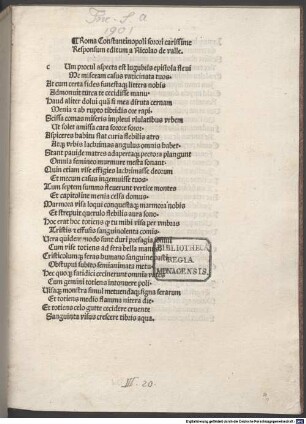 1901
Roma Constantinopoli sorori carissime
Responsum editum a Nicolao de valle.
c Um procul aspecta est lugubris epistola flevi
Me miseram casus vaticinata tuos.
At cum certa fides funestaque littera nobis
Admonuit rara te cecidisse manu.
Haud aliter dolui quam si mea diruta cernam
Menia ab rupto tibridis ore rapi.
Scissa comas miseris implevi ululatibus urbem
Ut solet amissa cara sorore soror.
Aspiceres habitu stat curia flebilis atro
Atque urbis lachrimans angulus omnis habet.
Stant pavide matres adapertaque pectora plangunt
Omnia femineo murmure mesta sonant.
Quin etiam vise effigies lachrimasse deorum
Et mecum casus ingemuisse tuos.
Tum septem summo fleverunt vertice montes
Et capitolinae menia celsa domus.
Marmora visa loqui concussaque marmora nobis
Et strepuit querulo flebilis aura sono.
Hoc erat hoc totiens quod tu mihi visa per umbras
Tristis et effusis sanguinolenta comis.
Vera quidem modo sunt duri presagia somni
Cum vise totiens ad fera bella manus.
Cristicolumque ferro humano sanguine
Obstupui subito semianimata metu.
Hec quoque fatidici cecinerunt omnia vates
Cum gemini totiens intonuere poli.
Visaque monstra simul metuendaque signa ferarum
Et totiens medio flamma
Et totiens celo gutte cecidere cruente
Sanguineus visus crescere tibris aqua.
BIBLIOTHECA
REGIA
MONACENSIS.
III. 20.